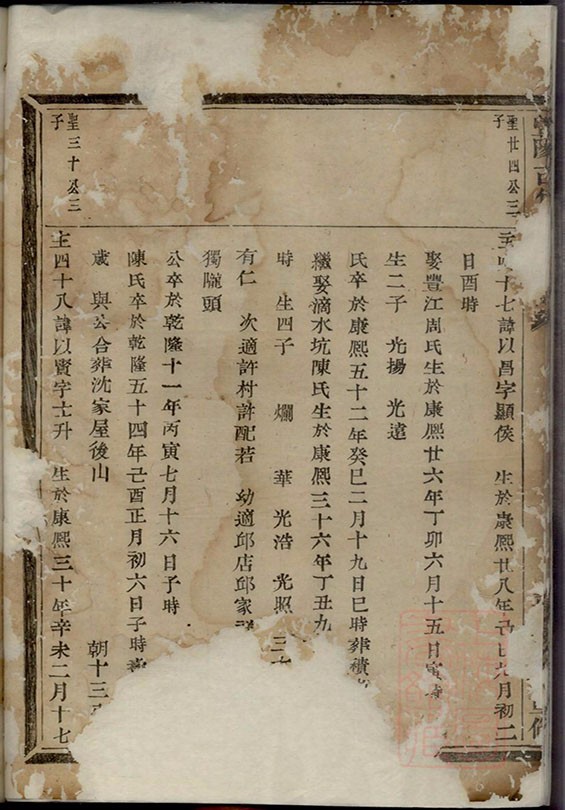 聖廿四公三子
主四十七諱以昌字顯侯 生於康熙廿八年己巳九月初二
日酉時
娶豐江周氏生於康熙廿六年丁卯六月十五日寅時
生二子 光揚 光遠
氏卒於康熙五十二年癸巳二月十九日巳時葬積
繼娶滴水坑陳氏生於康熙三十六年丁丑九
時 生四子 爛 華 光浩 光照 三
有仁 次適許村許配若 幼適邱店邱家
獨隴頭
公卒於乾隆十一年丙寅七月十六日子時
陳氏卒於乾隆五十四年己酉正月初六日子時
歲 與公合葬沈家屋後山 朝十三
聖三十公三子
主四十八諱以賢字士升 生於康熙三十年辛未二月十七